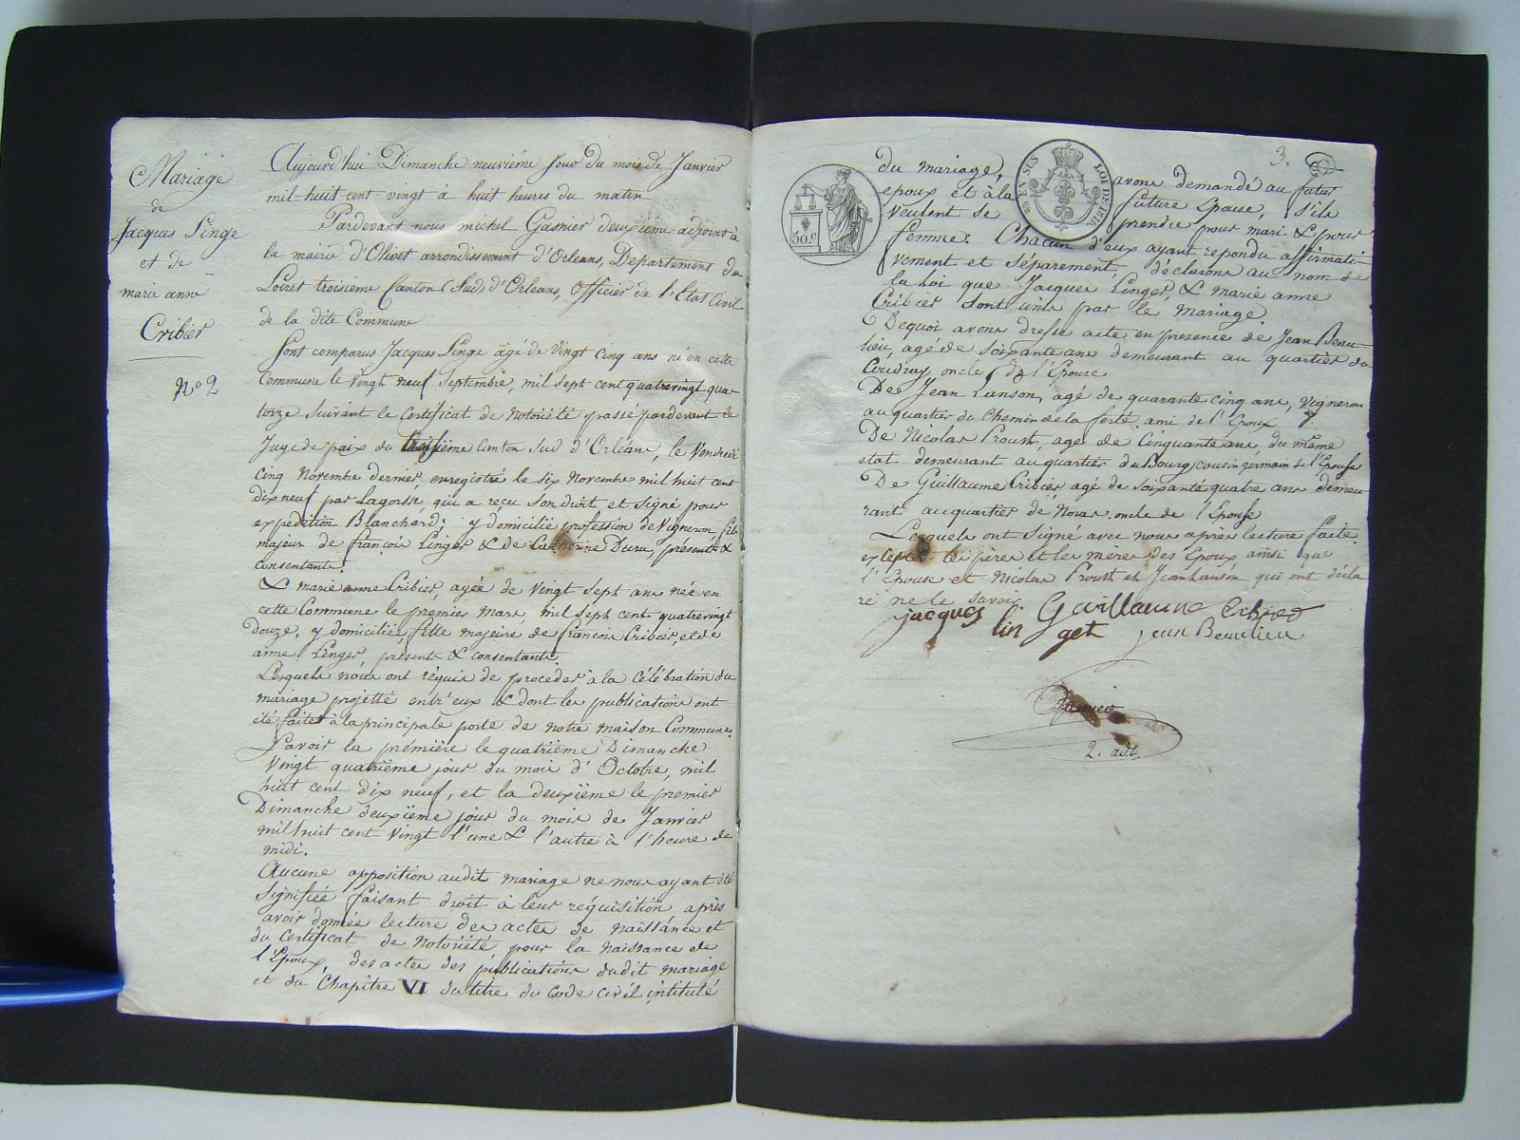 Mariage
de
Jacques Linge
et de
marie anne
Cribier
No 2
Aujourd'hui Dimanche neuviéme jour du mois de Janvier
mil-huit-cent vingt à huit heures du matin
Pardevant nous michel Gasnier deuxieme adjoint à
la mairie d'Olivet arrondissement d'Orleans, Departement du
Loiret troisieme Canton (Sud) d'Orleans, officier de l'Etat Civil
de la dite Commune
Sont comparus Jacques Linge âgé de vingt cinq ans né en cette
Commune le vingt neuf Septembre, mil sept cent quatrevingt qua-
torze suivant le certificat de notoriété passé pardevant le
Juge de paix du troisième canton Sud d'Orléans, le vendredi
cinq novembre dernier, enregistré le six Novembre mil huit cent
dix neuf par Lagorsse, qui a reçu son droit et signé pour
expedition Blanchard; y domicilié profession de Vigneron, fils
majeur de françois Linger & de Catherine Duru, présents &
consentants.
& marie anne Cribier, agée de vingt sept ans née en
cette Commune le premier mars, mil sept cent quatrevingt
douze, y domiciliée fille majeure de françois Cribier, et de
anne Linger, présents & consentants.
Lesquels nous ont réquis de proceder à la célébration du
mariage projetté entr'eux & dont les publications ont
été faites à la principale porte de notre maison Commune,
Savoir la première le quatrième Dimanche
vingt quatrième jour du mois d'Octobre, mil
huit cent dix neuf, et la deuxième le premier
Dimanche deuxième jour du mois de Janvier
mil huit cent vingt l'une & l'autre à l'heure de
midi.
Aucune opposition audit mariage ne nous ayant été
signifiée faisant droit à leur réquisition après
avoir donnée lecture des actes de naissance et
du certificat de notoriété pour la naissance de
l'Epoux, des actes des publications dudit mariage
et du Chapitre VI du titre du Code civil intitulé
3.
50.c
EN SUS
LOI DE 1816
du mariage, avons demandé au futur
epoux et à la future Epouse, s'ils
veulent se prendre pour mari & pour
femme. Chacun d'eux ayant repondu affirmati-
vement et séparement, déclarons au nom de
la loi que Jacques Linger, & marie anne
Cribier sont unis par le mariage
De quoi avons dressé acte en presence de Jean Beau-
lieu, agé de soixante ans demeurant au quartier du
Coudray oncle de l'Epouse
De Jean Lanson, agé de quarante cinq ans, vigneron
au quartier du Chemin de la ferté, ami de l'Epoux
De Nicolas Proust, agé de cinquante ans, du même
etat demeurant au quartier du Bourg cousin germain de l'Epouse
De Guillaume Cribier agé de soixante quatre ans demeu
rant au quartier de Noras, oncle de l'Epouse
Lesquels ont signé avec nous après lecture faite
excepté les pères et les meres des Epoux ainsi que
l'Epouse et Nicolas Proust et Jean Lanson qui ont décla
ré ne le savoir.
jacques lin get Guillaume Cribier
jean Beaulieu
Gasnier
2. adt